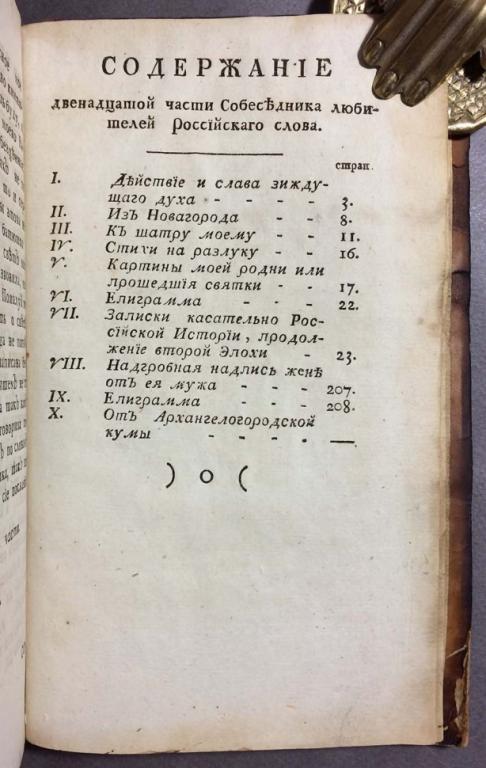 СОДЕРЖАНІЕ
двенадцатой части Собесѣдника люби-
телей Россїйскаго слова.
стран.
I. Дѣйствїе и слава зижду-
щаго духа - - - - 3.
II. Изъ Новагорода - - 8.
III. Къ шатру моему - - 11.
IV. Стихи на разлуку - - 16.
V. Картины моей родни или
прошедшїя святки - - 17.
VI. Епиграмма - - - 22.
VII. Записки касательно Рос-
сїйской Исторїи, продол-
женїе второй Эпохи - 23.
VIII. Надгробная надпись женѣ
отъ ея мужа - - - 207.
IX. Епиграмма - - - 208.
X. Отъ Архангелогородской
кумы - - - - —
) o (